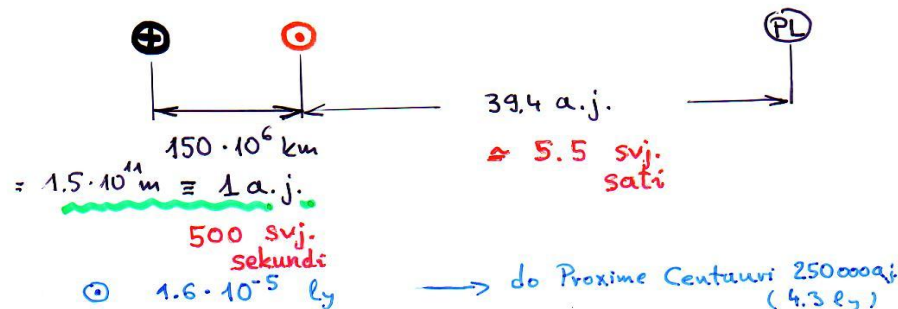 PL
39,4 a.j.
150 · 10⁶ km
≃ 5.5 svj.
sati
= 1.5 · 10¹¹ m ≡ 1 a.j.
500 svj.
sekundi
⊙ 1.6 · 10⁻⁵ ly → do Proxime Centauri 250000 a.j.
(4.3 ly)